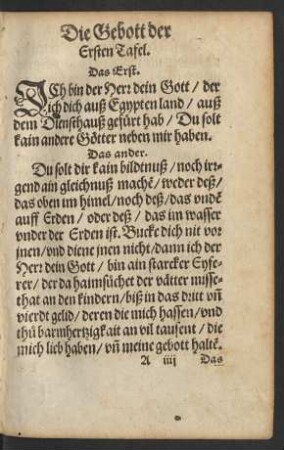 Die Gebott der
Ersten Tafel.
Das Erst.
ICh bin der Herr dein Gott / der
ich dich auß Egypten land / auß
dem Diensthauß gefürt hab / Du solt
kain andere Götter neben mir haben.
Das ander.
Du solt dir kain bildtnuß / noch irr-
gend ain gleichnuß machẽ / weder deß /
das oben im himel / noch deß / das vndẽ
auff Erden / oder deß / das im wasser
vnder der Erden ist. Bucke dich nit vor
jnen / vnd diene jnen nicht / dann ich der
Herr dein Gott / bin ain starcker Eyfe-
rer / der da haimsůchet der vätter misse-
that an den kindern / biß in das dritt vñ
vierdt gelid / deren die mich hassen / vnd
thů barmhertzigkait an vil tausent / die
mich lieb haben / vñ meine gebott haltẽ.
A iiij Das